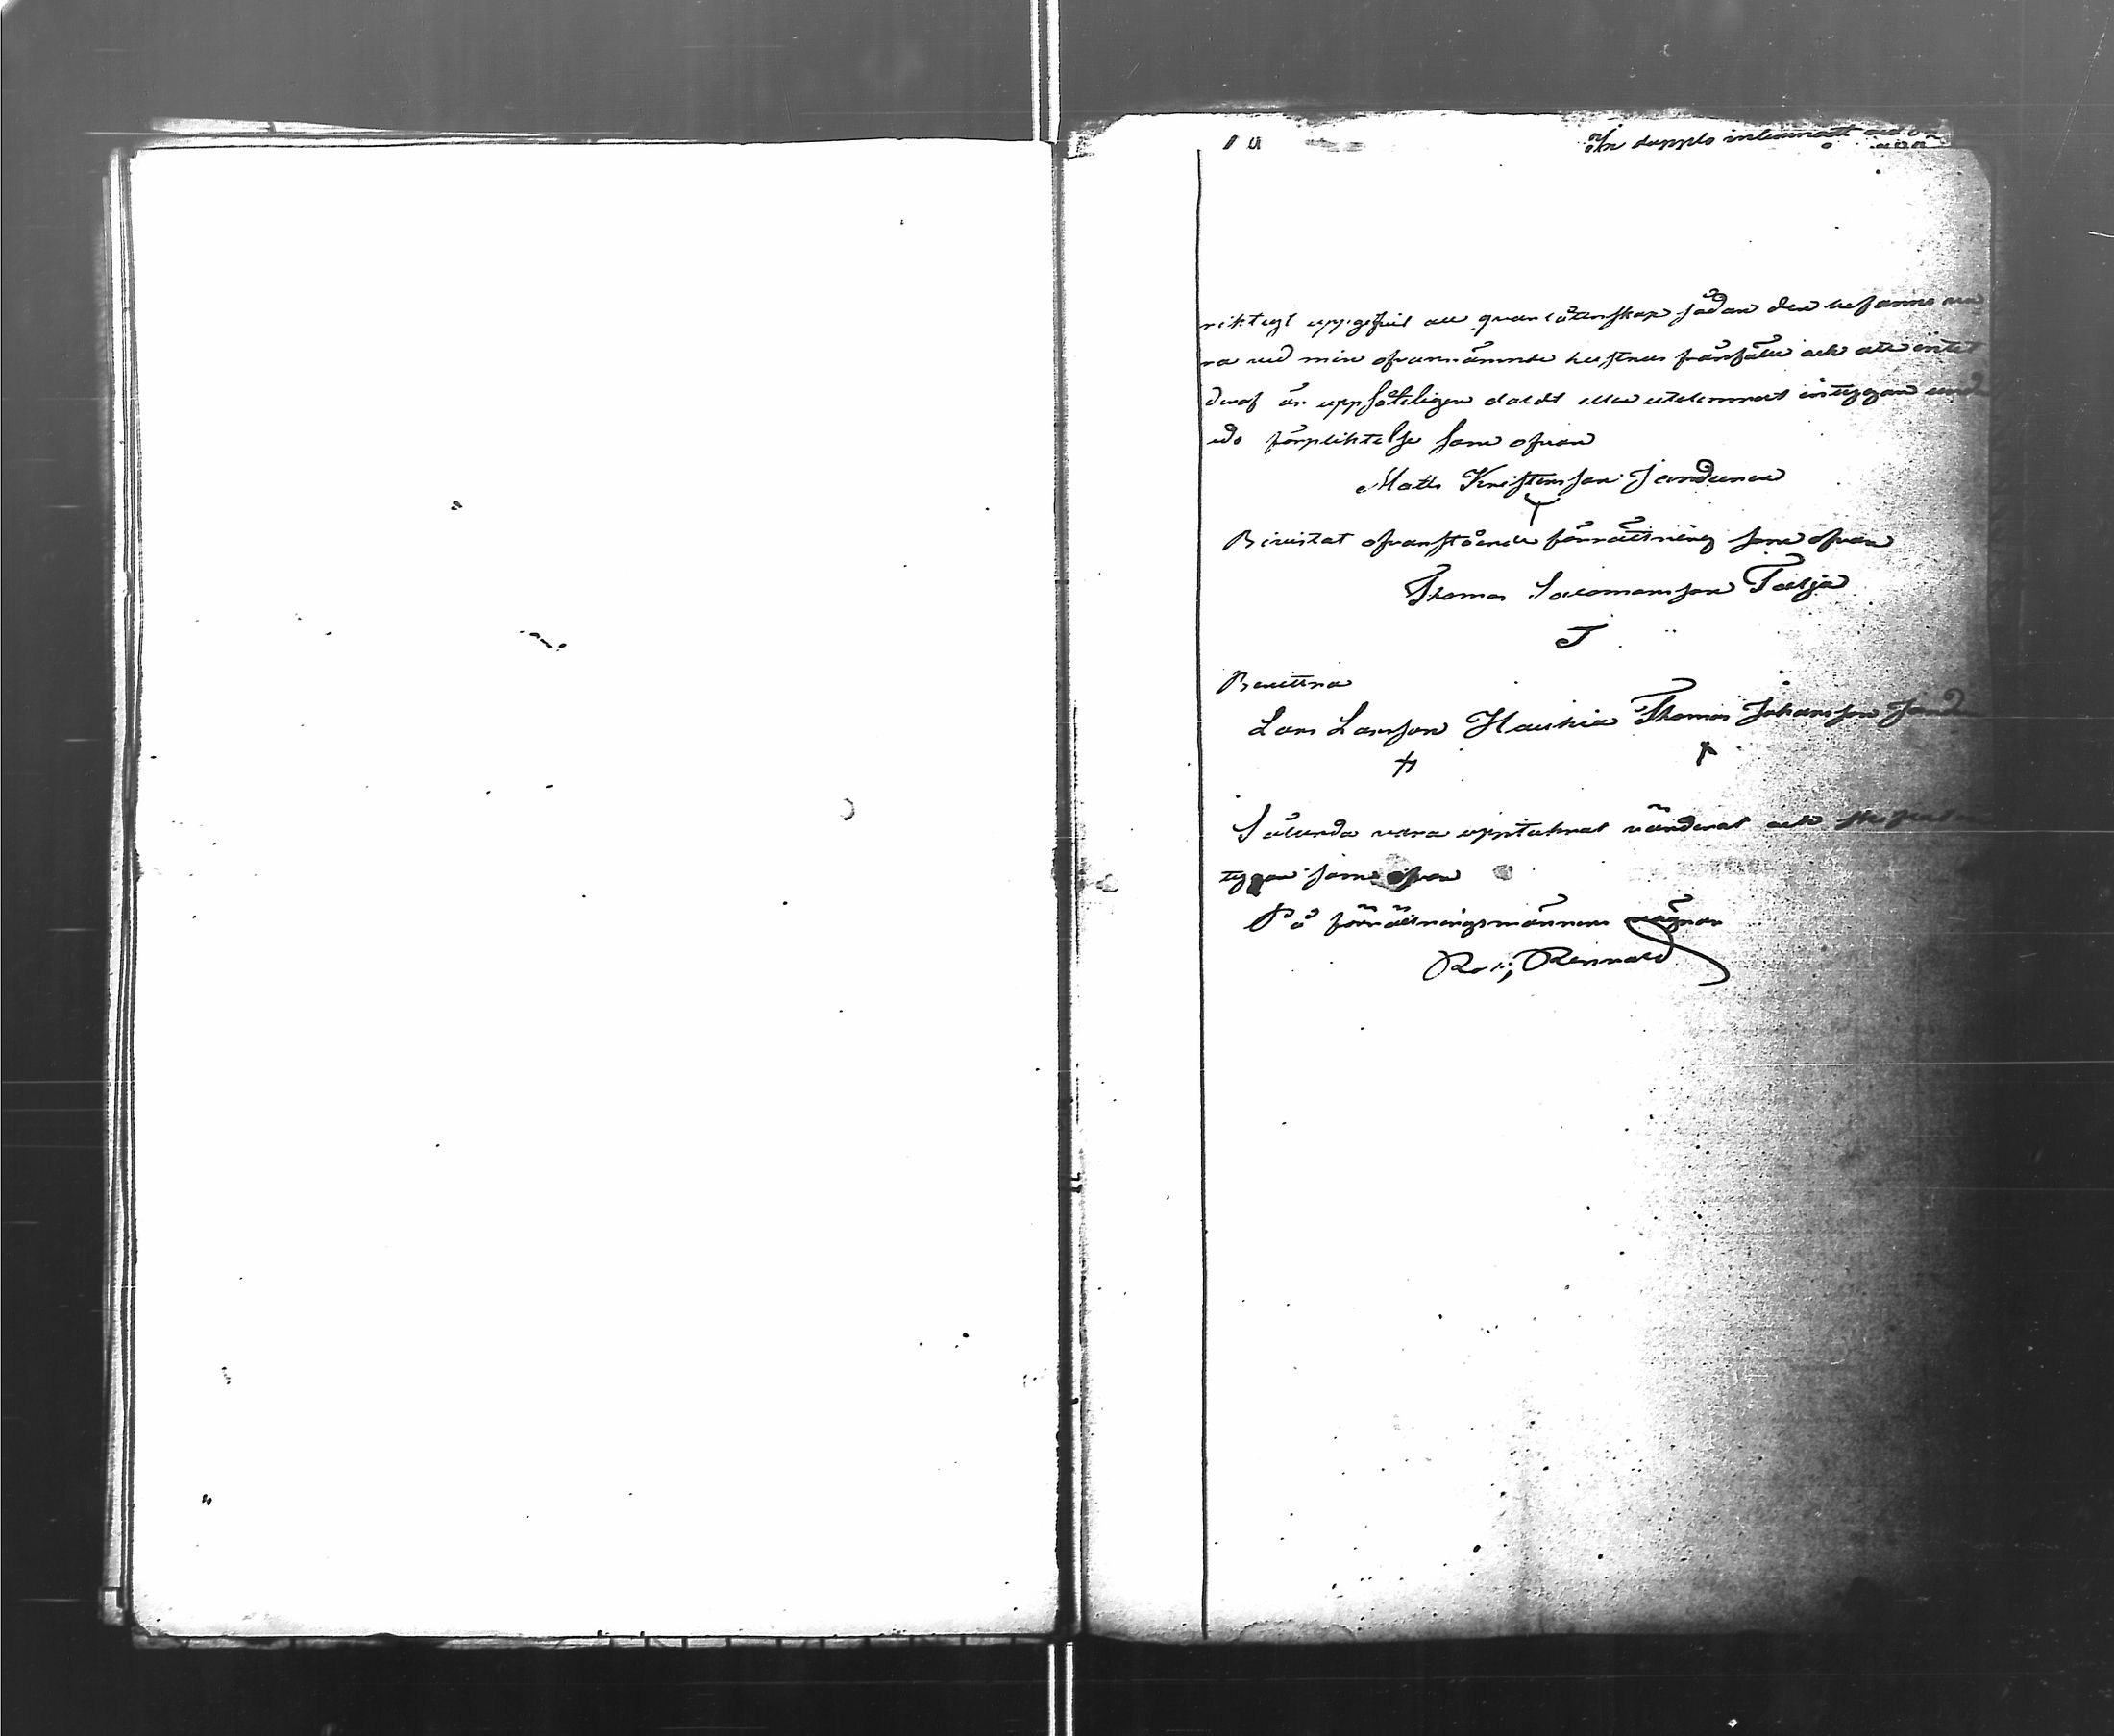 In duplo inlemnadt
riktigt uppgifvit all qvarlåtenskap sådan den befanns va
ra vid min ofvannämnde hustrus frånfälle och att intet
deraf är uppsåteligen doldt eller utelemnat intygar und
eds förpliktelse som ofvan
Matts Kristersson Jandunen
Bivistat ofvanstående förrättning som ofvan
Thomas Salomonsson Talja
T
Bevittna
Lars Larsson Haukia Thomas Johansson Jandu
Sålunda vara upptaknat värderat och skiftat in
tygar som ofvan
På förrättningsmännens vägnar
Rob; Renvald